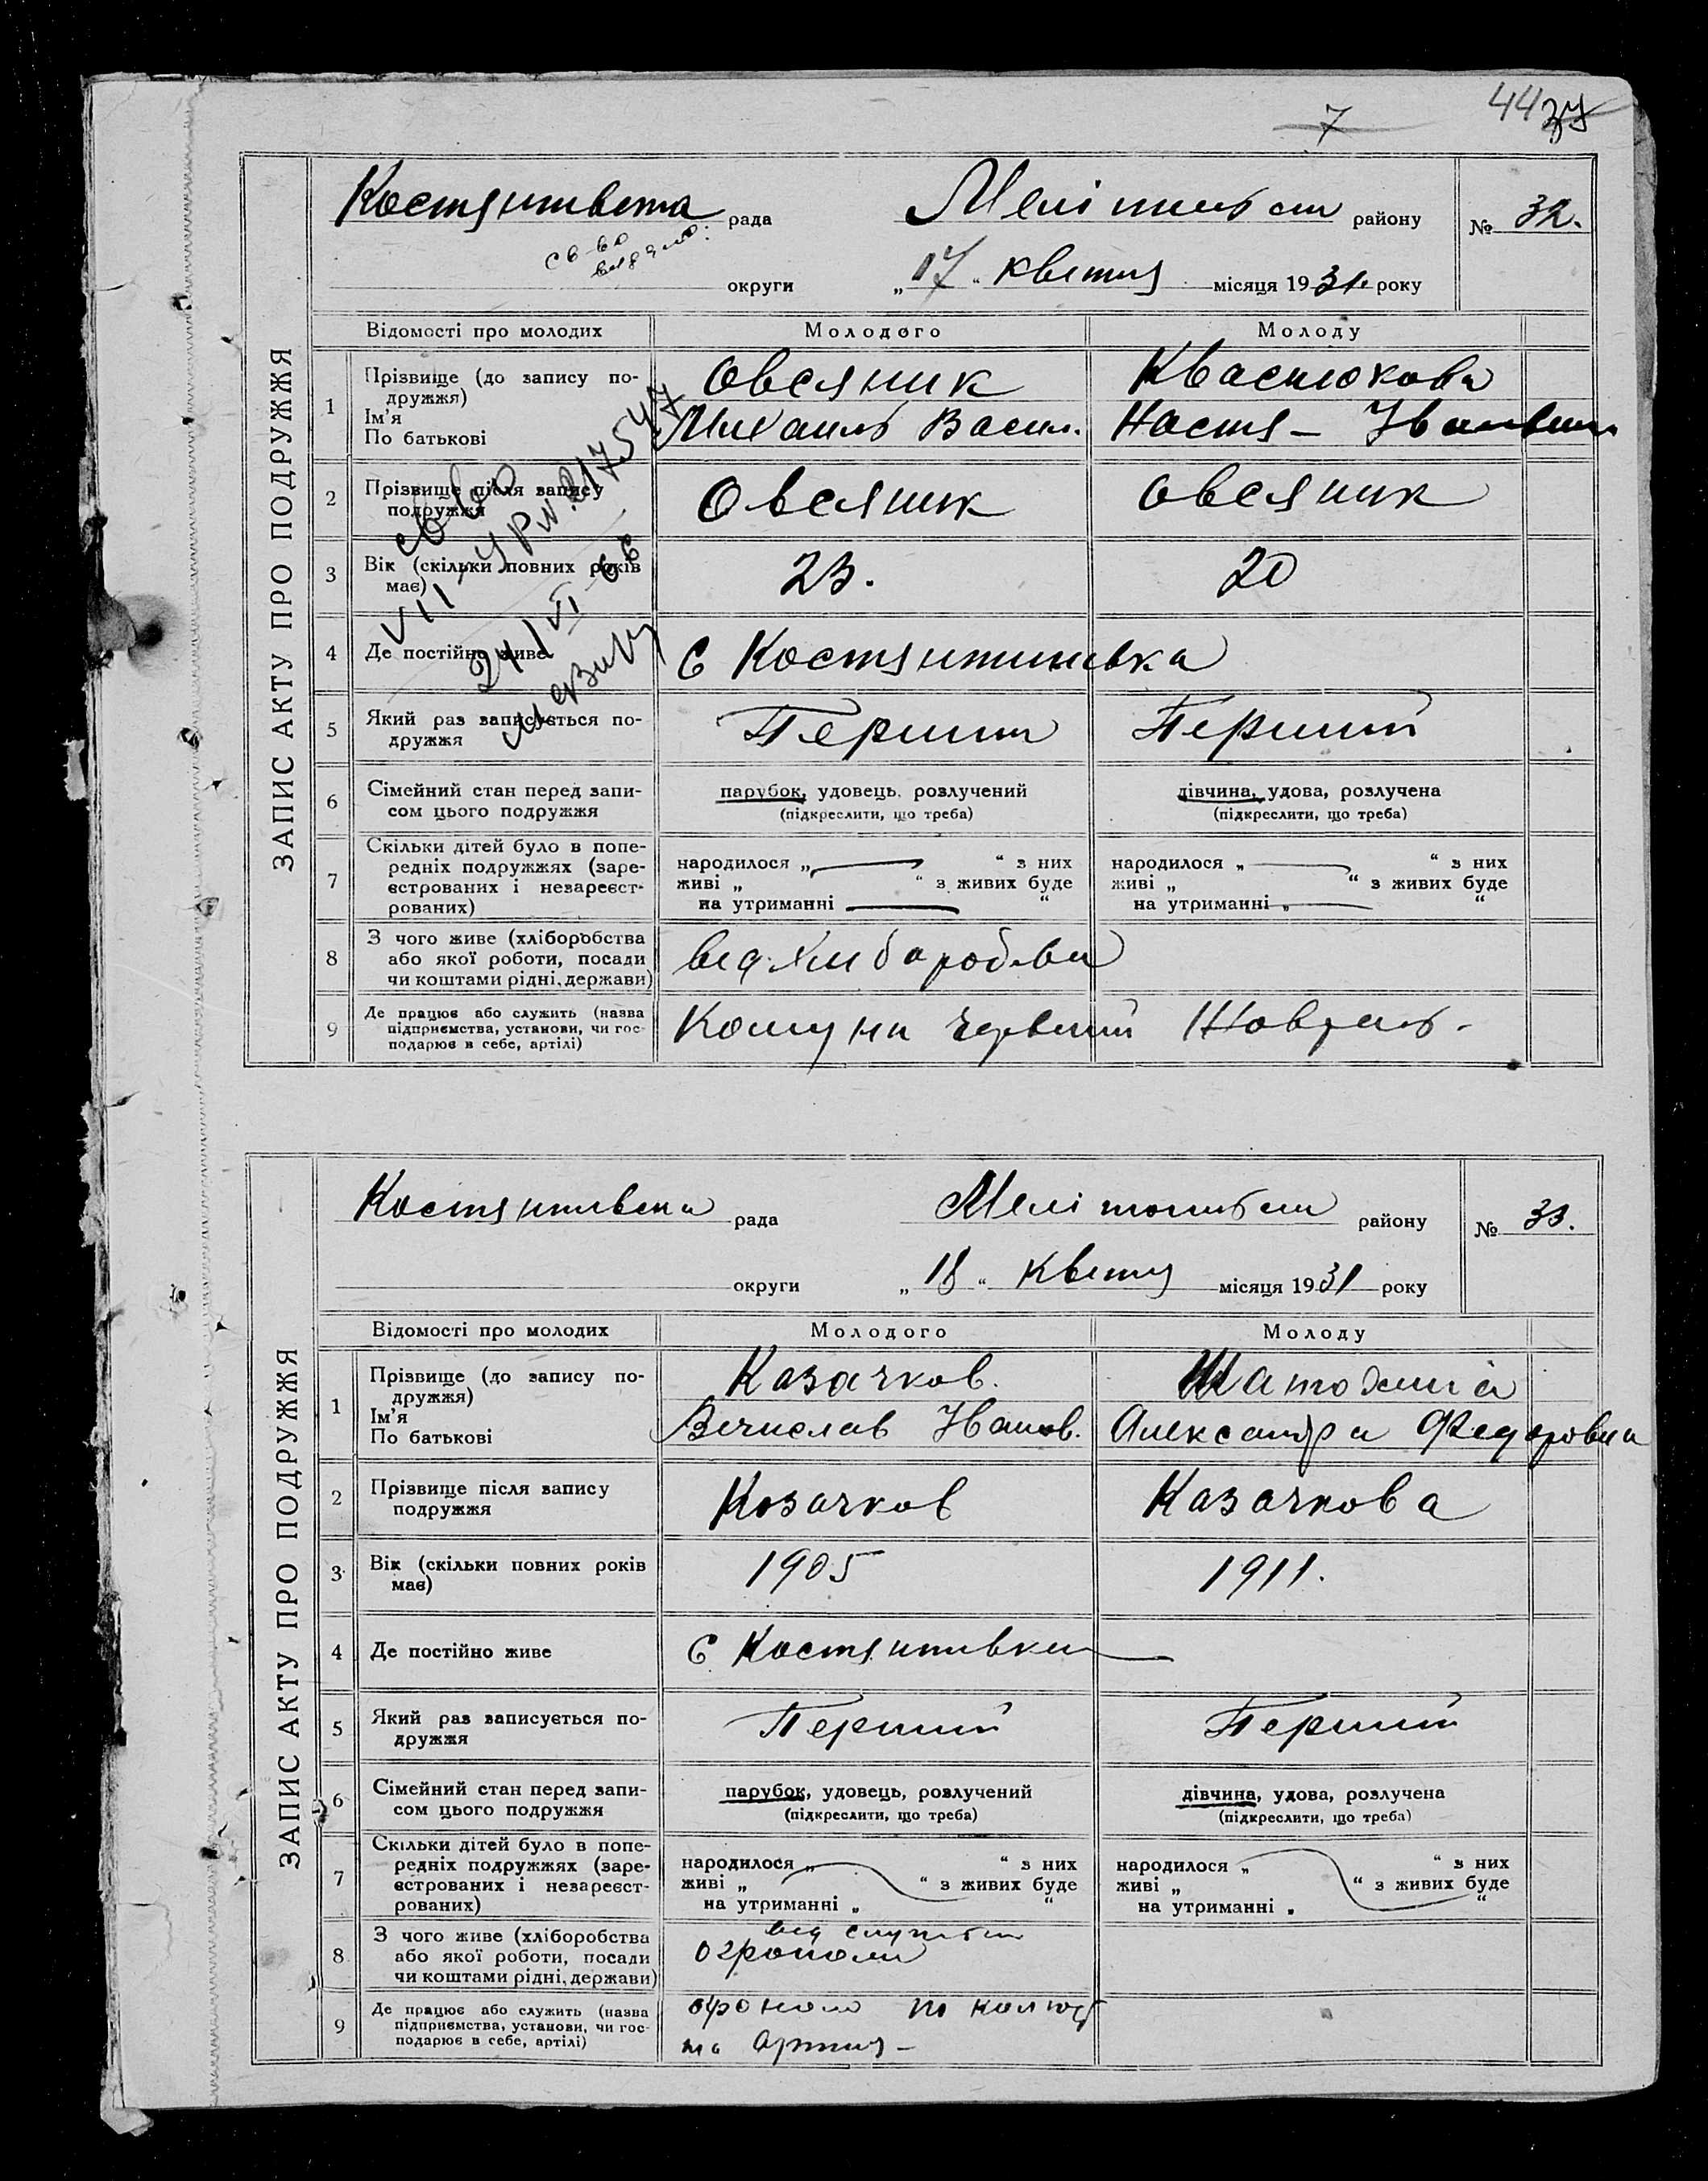 7 44 37
Костянтивста рада Мелітопольск району № 32.
св-во
видано:
округи „17“ квітня місяця 1931. року
ЗАПИС АКТУ ПРО ПОДРУЖЖЯ
Відомості про молодих Молодого Молоду
1 Прізвище (до запису по-
дружжя)
Ім'я
По батькові
Овсяник Квасникова
Михаиль Васил. Настя – Івановна
2 Прізвище після запису
подружжя
Овсяник Овсяник
3 Вік (скільки повних років
має)
23. 20
4 Де постійно живе С Костянтинівка
5 Який раз записується по-
дружжя
Перший Перший
6 Сімейний стан перед запи-
сом цього подружжя
парубок, удовець, розлучений дівчина, удова, розлучена
(підкреслити, що треба) (підкреслити, що треба)
7 Скільки дітей було в попе-
редніх подружжях (заре-
єстрованих і незареєст-
рованих)
народилося „ “ з них народилося „ “ з них
живі „ “ з живих буде живі „ “ з живих буде
на утриманні “ на утриманні „ “
8 З чого живе (хліборобства
або якої роботи, посади
чи коштами рідні, держави)
від хлиборобва
9 Де працює або служить (назва
підприємства, установи, чи гос-
подарює в себе, артілі)
Комуна Червоний
св-во
VII-УР № 217547
24/VI-66
Костянтивска рада Мелітопольск району № 33.
округи „18“ Квітня місяця 1931 року
ЗАПИС АКТУ ПРО ПОДРУЖЖЯ
Відомості про молодих Молодого Молоду
1 Прізвище (до запису по-
дружжя)
Ім'я
По батькові
Казачков.
Вечислав Іванов. Александра Федоровна
2 Прізвище після запису
подружжя
Козачков Казачкова
3 Вік (скільки повних років
має)
1905 1911.
4 Де постійно живе С Костянтивка
5 Який раз записується по-
дружжя
Перший Перший
6 Сімейний стан перед запи-
сом цього подружжя
парубок, удовець, розлучений дівчина, удова, розлучена
(підкреслити, що треба) (підкреслити, що треба)
7 Скільки дітей було в попе-
редніх подружжях (заре-
єстрованих і незареєст-
рованих)
народилося „ “ з них народилося „ “ з них
живі „ “ з живих буде живі „ “ з живих буде
на утриманні „ “ на утриманні „ “
8 З чого живе (хліборобства
або якої роботи, посади
чи коштами рідні, держави)
від служби
огроном
9 Де працює або служить (назва
підприємства, установи, чи гос-
подарює в себе, артілі)
огроном по